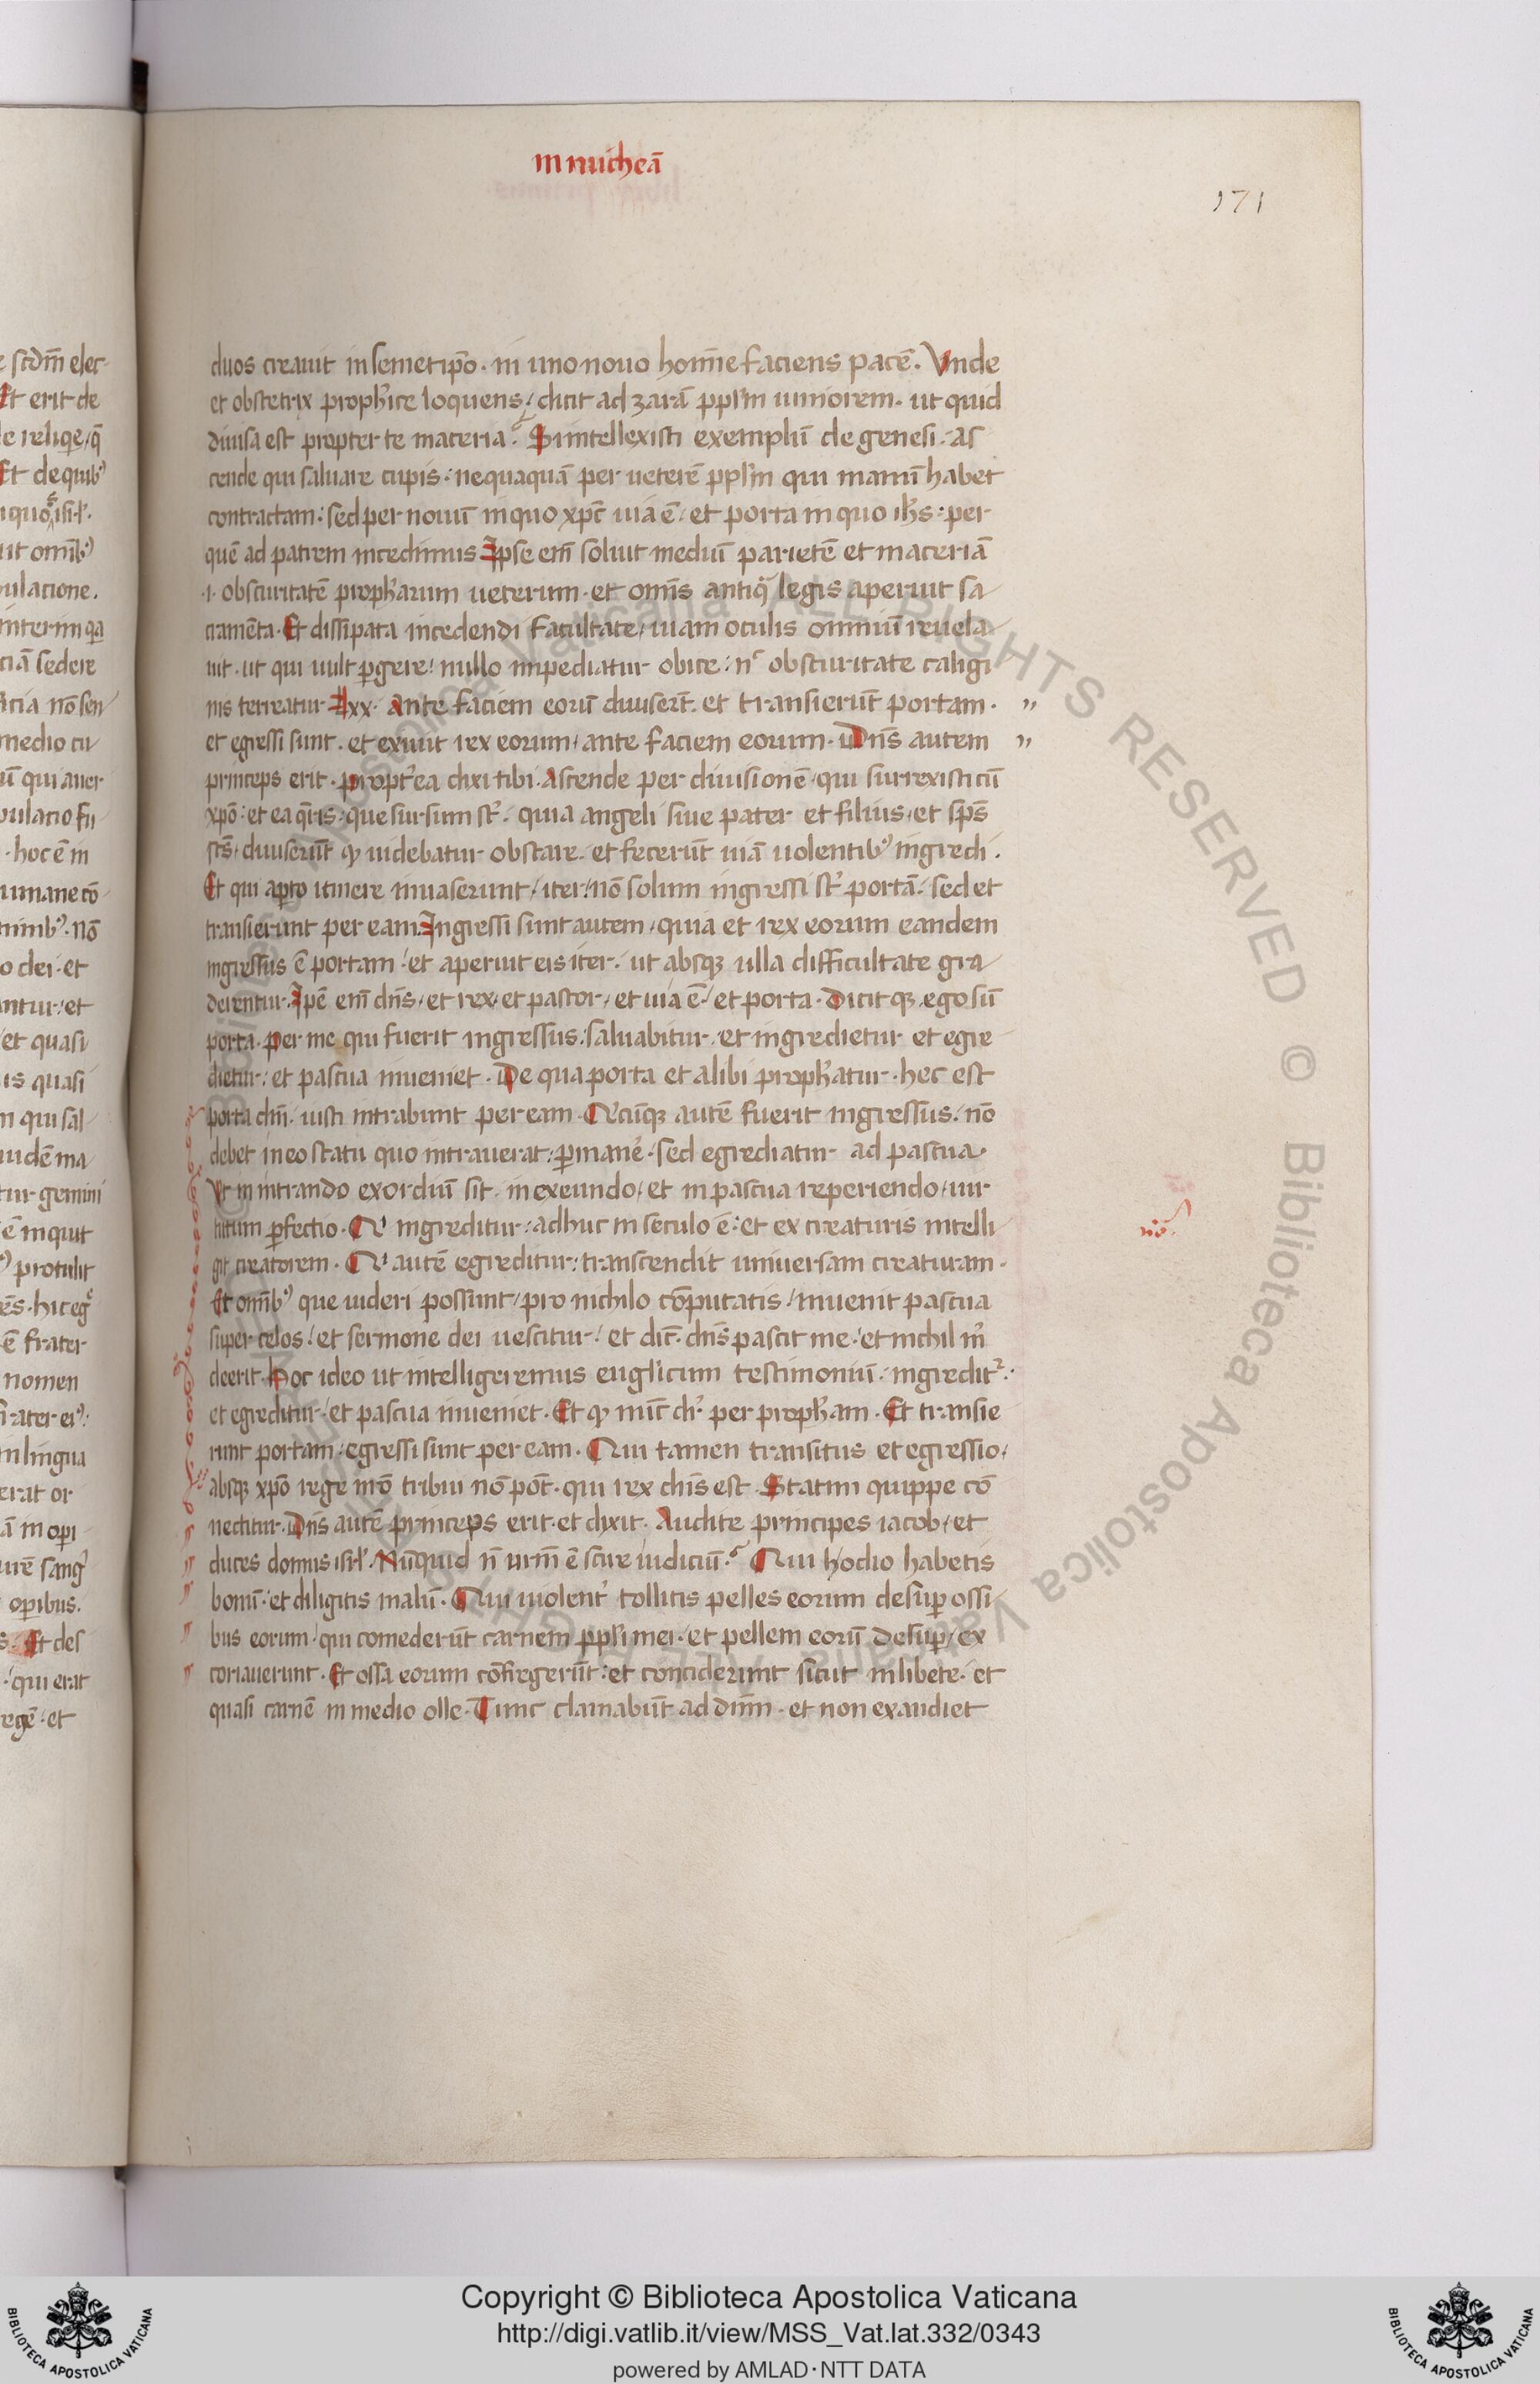 in micheā
171
duos creauit in semetip̄o. in uno nouo homīe faciens pacē. Vnde
et obstetrix prophetice loquens / dicit ad zarā ppl'm iuniorem. ut quid
diuisa est propter te maceria? Si intellexisti exemplū de genesi. as
cende qui saluare cupis. nequaquā per ueterē ppl'm qui manū habet
contractam: sed per nouū in quo xp̄c uia ē. et porta in quo ih̄s: per
quē ad patrem incedimus. Ipse em̄ soluit mediū parietē et maceriā
.i. obscuritatē prophetarum ueterum. et om̄s antiq̄ legis aperuit sa
cramēta. Et dissipata incedendi facultate, uiam oculis omniū reuela
uit. ut qui uult ꝑgere: nullo impediatur obice: nec obscuritate caligi
nis terreatur. Lxx. Ante faciem eorū diuiserūt. et transierūt portam.
et egressi sunt. et exiuit rex eorum, ante faciem eorum. Dn̄s autem
princeps erit. propt'ea dixi tibi. Ascende per diuisionē, qui surrexisti cū
xp̄o: et ea q̄ris: que sursum st'. quia angeli siue pater et filius, et sp̄s
sc̄s, diuiserūt qd uidebatur obstare. et fecerūt uiā uolentib' ingredi.
Et qui apto itinere inuaserunt, iter: nō solum ingressi st' portā: sed et
transierunt per eam. Ingressi sunt autem, quia et rex eorum eandem
ingressus ē portam: et aperuit eis iter. ut absq ulla difficultate gra
derentur. Ip̄e em̄ dn̄s, et rex, et pastor, et uia ē, et porta. Dicitq, ego sū
porta. per me qui fuerit ingressus: saluabitur. et ingredietur et egre
dietur: et pascua inueniet. De qua porta et alibi prophatur. hec est
porta dn̄i. iusti intrabunt per eam. Q'cūq autē fuerit ingressus. nō
debet in eo statu quo intrauerat: ꝑmane'. sed egrediatur ad pascua.
Vt in intrando exordiū sit. in exeundo, et in pascua reperiendo, uir
tutum ꝑfectio. Q' ingreditur: adhuc in seculo ē: et ex creaturis intelli
git creatorem. Q' autē egreditur: transcendit uniuersam creaturam.
Et om̄ib' que uideri possunt, pro nichilo cōputatis, inuenit pascua
super celos: et sermone dei uescitur: et dic̄. dn̄s pascit me, et nichil m'
deerit. Hoc ideo ut intelligeremus eugl'icum testimoniū. ingredit':
et egreditur. et pascua inueniet. Et qd nūc dr' per propham. Et transie
runt portam: egressi sunt per eam. Qui tamen transitus et egressio,
absq xp̄o rege nr̄o tribui nō pōt. qui rex dn̄s est. Statim quippe cō
nectitur. Dn̄s autē princeps erit. et dixit. Audite principes iacob, et
duces domus isr'l. Nūquid n̄ ur̄m ē scire iudiciū? Qui hodio habetis
bonū. et diligitis malū. Qui uiolent' tollitis pelles eorum desuꝑ ossi
bus eorum: qui comederūt carnem ppl'i mei. et pellem eorū desuꝑ, ex
coriauerunt. Et ossa eorum cōfregerūt: et conciderunt sicut in libete. et
quasi carnē in medio olle. Tunc clamabūt ad dn̄m. et non exaudiet
Copyright © Biblioteca Apostolica Vaticana
http://digi.vatlib.it/view/MSS_Vat.lat.332/0343
powered by AMLAD·NTT DATA